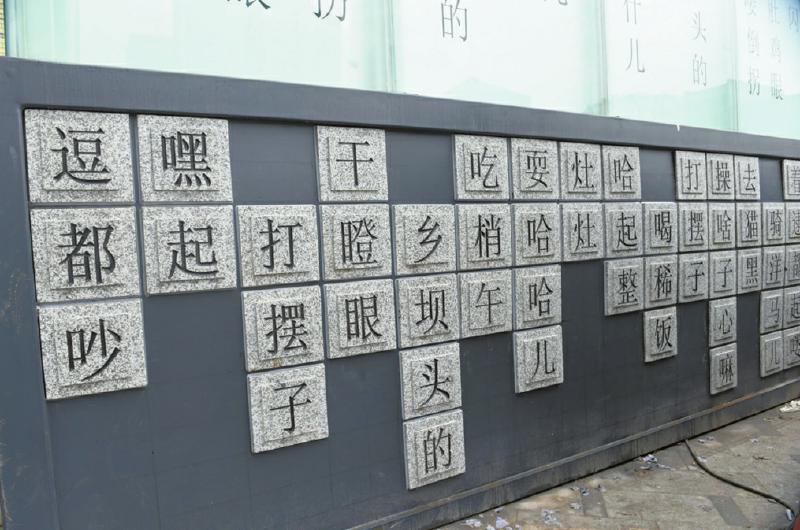 逗都吵
嘿起
打摆子
干瞪眼
乡坝头的
吃梢午
耍哈哈儿
灶灶
哈起整
喝稀饭
打摆子
操啥子心嘛
去猫黑
骑洋马儿
着
拐
的
什儿
头的
倒拐
鸡眼